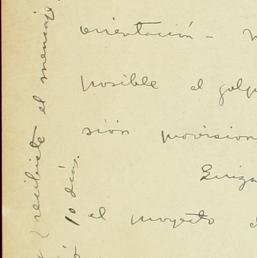 orientación –
posible el golp
sión provision
el proyecto
recibiste el mensaje
10 días